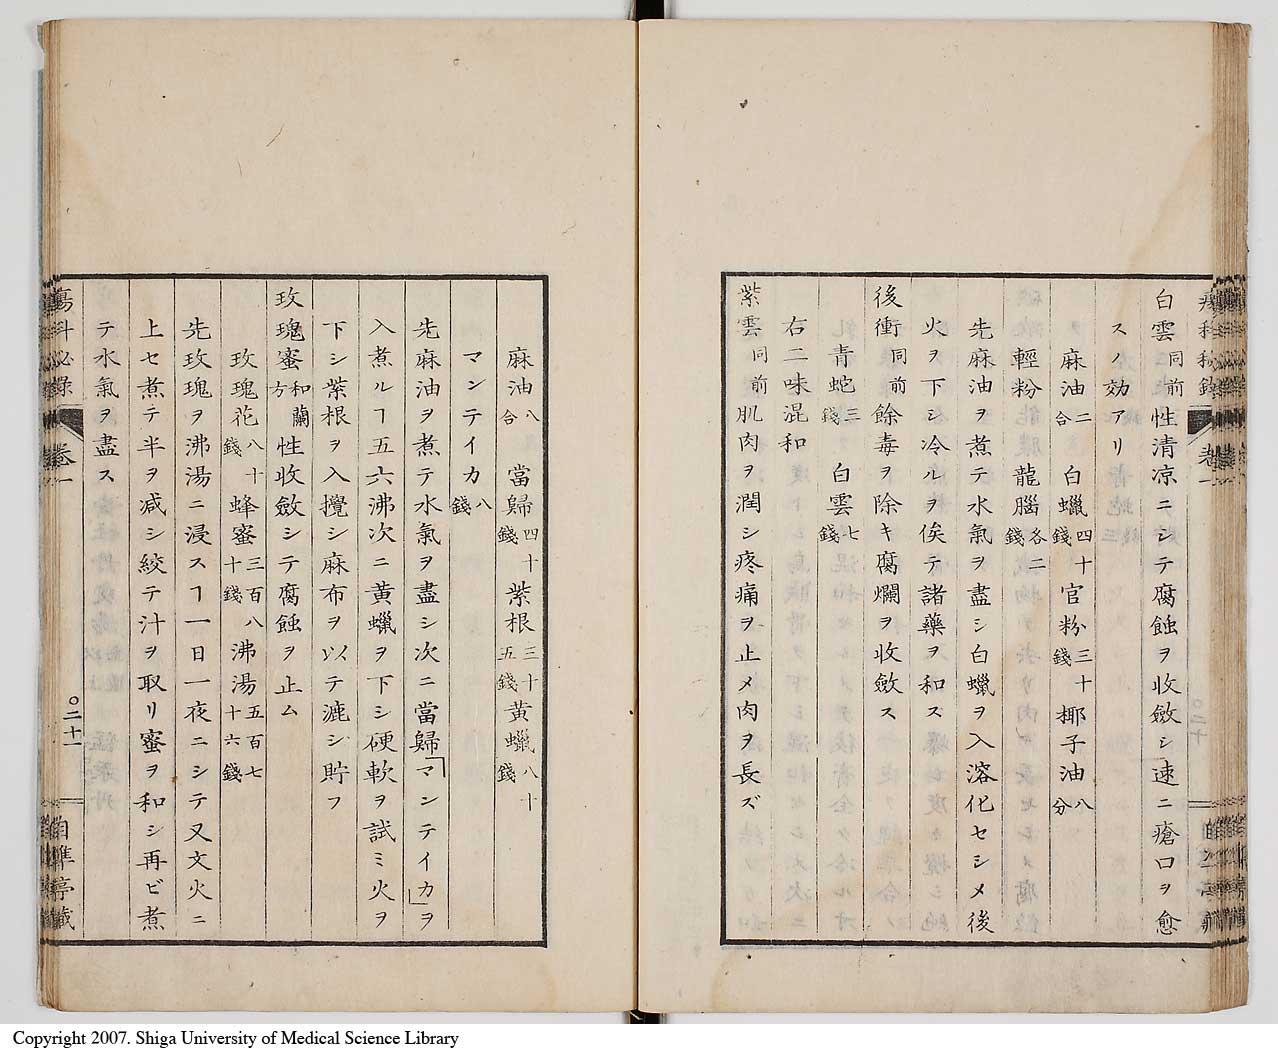 白雲同前性清凉ニシテ腐蝕ヲ收斂シ速ニ瘡口ヲ愈
スノ効アリ
麻油二合 白蠟四十錢 官粉三十錢 椰子油八分
輕粉 龍腦各二錢
先麻油ヲ煮テ水氣ヲ盡シ白蠟ヲ入溶化セシメ後
火ヲ下シ冷ルヲ俟テ諸藥ヲ和ス
後衝同前餘毒ヲ除キ腐爛ヲ收斂ス
青蛇三錢 白雲七錢
右二味混和
紫雲同前肌肉ヲ潤シ疼痛ヲ止メ肉ヲ長ズ
麻油八合 當歸四十錢 紫根三十五錢 黃蠟八十錢
マンテイカ八錢
先麻油ヲ煮テ水氣ヲ盡シ次ニ當歸「マンテイカ」ヲ
入煮ルヿ五六沸次ニ黃蠟ヲ下シ硬軟ヲ試ミ火ヲ
下シ紫根ヲ入攪シ麻布ヲ以テ漉シ貯フ
玫瑰蜜和蘭方性收斂シテ腐蝕ヲ止ム
玫瑰花八十錢 蜂蜜三百八十錢 沸湯五百七十六錢
先玫瑰ヲ沸湯ニ浸スヿ一日一夜ニシテ又文火ニ
上セ煮テ半ヲ減シ絞テ汁ヲ取リ蜜ヲ和シ再ビ煮
テ水氣ヲ盡ス
瘍科秘錄 卷一 ○二十一 自準亭藏
Copyright 2007. Shiga University of Medical Science Library